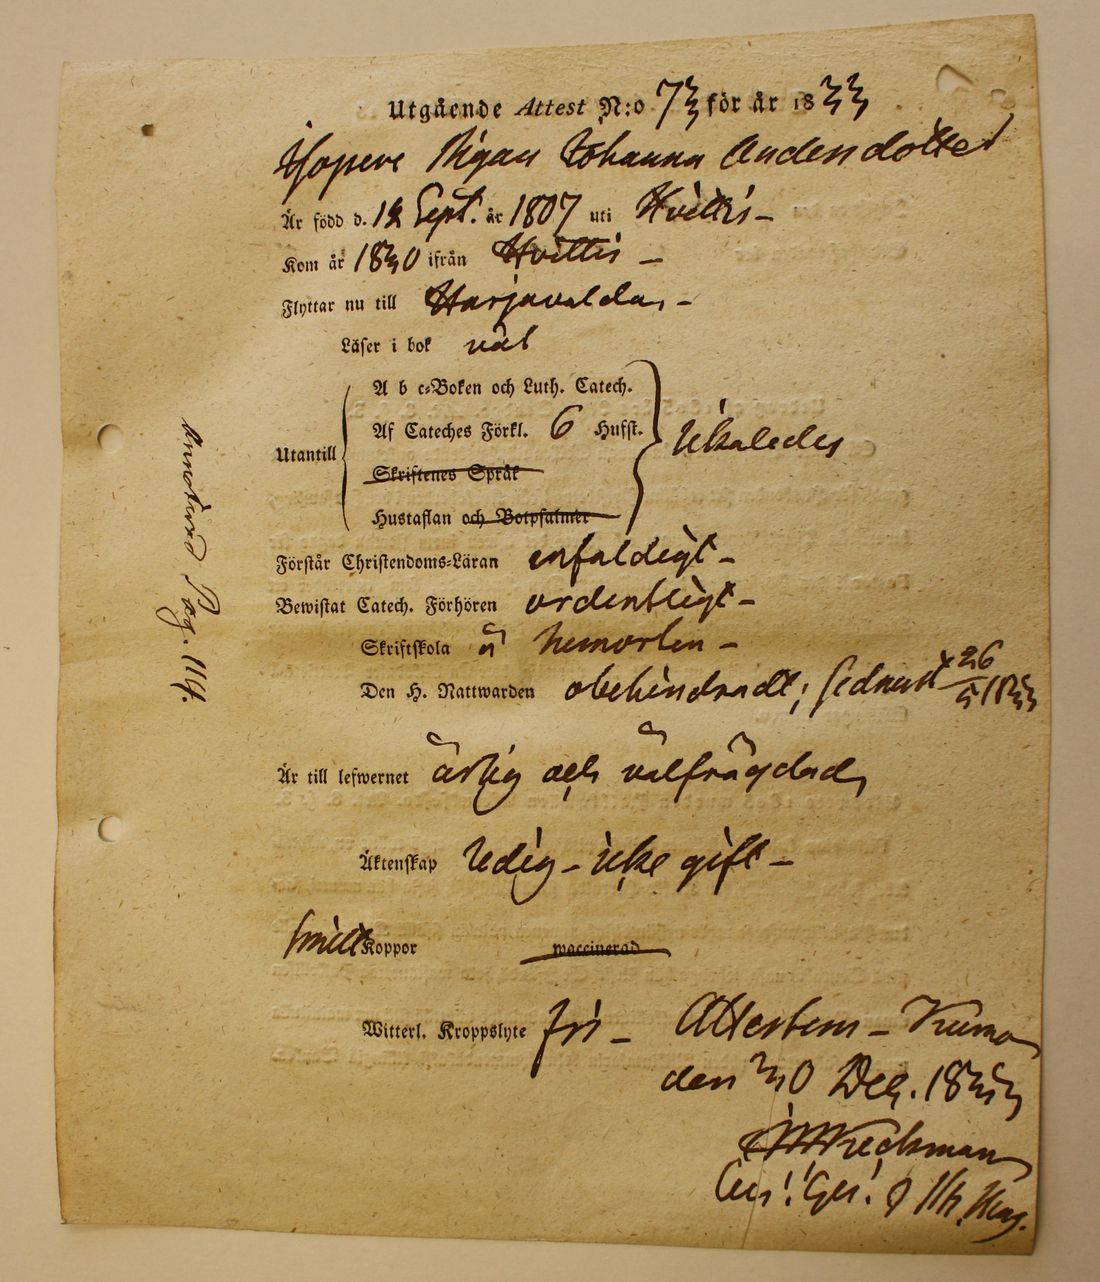 Utgående Attest N:o 73 för år 1833
Pigan Johanna Andersdotter
Är född d. 12 Sept. år 1807 uti Hvittis –
Kom år 1830 ifrån Hvittis –
Flyttar nu till Harjavalda, –
Läser i bok väl
A b c-Boken och Luth. Catech.
Utantill Af Cateches Förkl. 6 Hufst. likaledes
Skriftenes Språk
Hustaflan och Botpsalmer
Förstår Christendoms-Läran enfaldigt –
Bewistat Catech. Förhören ordentligt –
Skriftskola å hemorten –
Den H. Nattwarden obehindradt, sednast 26/5 1833
Är till lefwernet ärlig och välfrägdad,
Äktenskap ledig – icke gift –
haft Koppor waccinerad
Witterl. Kroppslyte fri – Attesteras – Kumo
den 30 Dec. 1833
Annoterad Pag. 114.